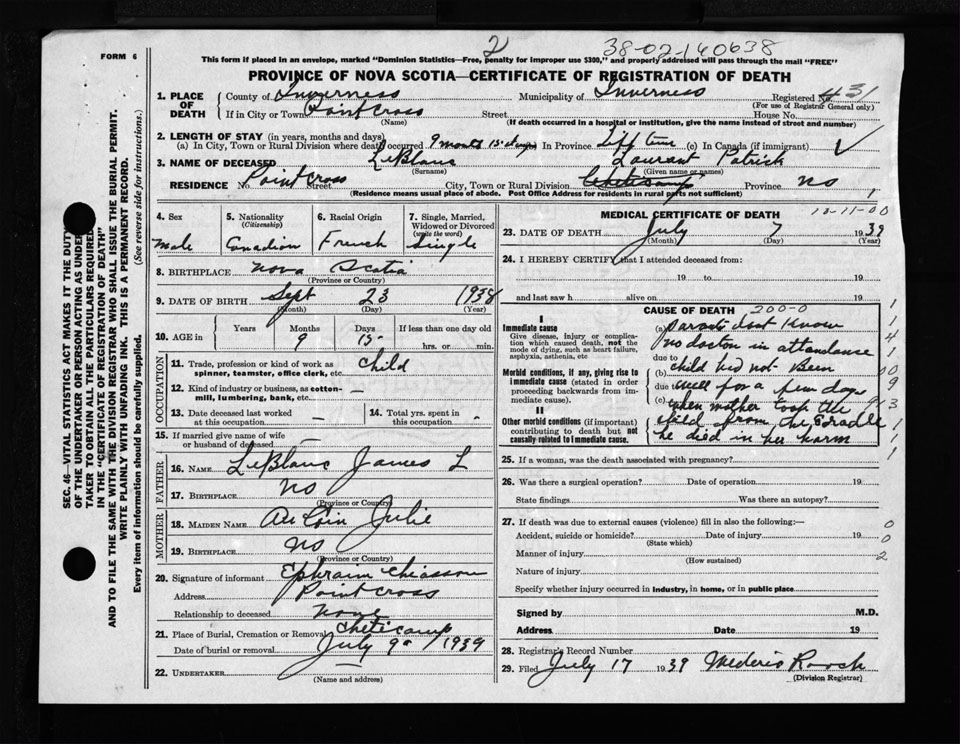 2 38-02-140638
FORM 6
This form if placed in an envelope, marked "Dominion Statistics—Free, penalty for improper use $300," and properly addressed will pass through the mail "FREE"
PROVINCE OF NOVA SCOTIA—CERTIFICATE OF REGISTRATION OF DEATH
1. PLACE OF DEATH County of Inverness Municipality of Inverness Registered No. 431
(For use of Registrar General only)
If in City or Town Point Cross Street House No.
(Name) (If death occurred in a hospital or institution, give the name instead of street and number)
2. LENGTH OF STAY (in years, months and days)
(a) In City, Town or Rural Division where death occurred 9 months 15 days In Province Life time (c) In Canada (if immigrant)
3. NAME OF DECEASED LeBlanc Laurant Patrick
(Surname) (Given name or names)
RESIDENCE No. Point Cross Street City, Town or Rural Division Cheticamp Province NS
(Residence means usual place of abode. Post Office Address for residents in rural parts not sufficient) 1
4. Sex male
5. Nationality (Citizenship) Canadian
6. Racial Origin French
7. Single, Married, Widowed or Divorced (write the word) Single
8. BIRTHPLACE Nova Scotia
(Province or Country)
9. DATE OF BIRTH Sept 23 1938
(Month) (Day) (Year)
10. AGE in Years Months 9 Days 15 If less than one day old
hrs. or min.
OCCUPATION
11. Trade, profession or kind of work as spinner, teamster, office clerk, etc. Child
12. Kind of industry or business, as cotton-mill, lumbering, bank, etc. —
13. Date deceased last worked at this occupation —
14. Total yrs. spent in this occupation —
15. If married give name of wife or husband of deceased —
FATHER
16. NAME LeBlanc James L
17. BIRTHPLACE NS
(Province or Country)
MOTHER
18. MAIDEN NAME Au Coin Julie
19. BIRTHPLACE NS
(Province or Country)
20. Signature of informant Ephraim Chiasson
Address Point Cross
Relationship to deceased none
21. Place of Burial, Cremation or Removal Cheticamp
Date of burial or removal July 9 1939
22. UNDERTAKER —
(Name and address)
MEDICAL CERTIFICATE OF DEATH
23. DATE OF DEATH July 7 1939
(Month) (Day) (Year)
24. I HEREBY CERTIFY that I attended deceased from:
19 to 19
and last saw h alive on 19
CAUSE OF DEATH 200-0
I
Immediate cause
Give disease, injury or complication which caused death, not the mode of dying, such as heart failure, asphyxia, asthenia, etc
Morbid conditions, if any, giving rise to immediate cause (stated in order proceeding backwards from immediate cause).
II
Other morbid conditions (if important) contributing to death but not causally related to immediate cause.
(a) Parents dont Know
no doctor in attendance
due to
(b) child hed not Been
due well for a few days
(c) when mother toop the
child from the Cradle
he died in her harm
25. If a woman, was the death associated with pregnancy?
26. Was there a surgical operation? Date of operation 19
State findings Was there an autopsy?
27. If death was due to external causes (violence) fill in also the following:—
Accident, suicide or homicide? Date of injury 19
(State which)
Manner of injury
(How sustained)
Nature of injury
Specify whether injury occurred in industry, in home, or in public place
Signed by M.D.
Address Date 19
28. Registrar's Record Number
29. Filed July 17 1939 Mederic Roach
(Division Registrar)
SEC. 46—VITAL STATISTICS ACT MAKES IT THE DUTY
OF THE UNDERTAKER OR PERSON ACTING AS UNDER-
TAKER TO OBTAIN ALL THE PARTICULARS REQUIRED
IN THE "CERTIFICATE OF REGISTRATION OF DEATH"
AND TO FILE THE SAME WITH THE DIVISION REGISTRAR WHO SHALL ISSUE THE BURIAL PERMIT.
WRITE PLAINLY WITH UNFADING INK. THIS IS A PERMANENT RECORD.
Every item of information should be carefully supplied. (See reverse side for instructions.)